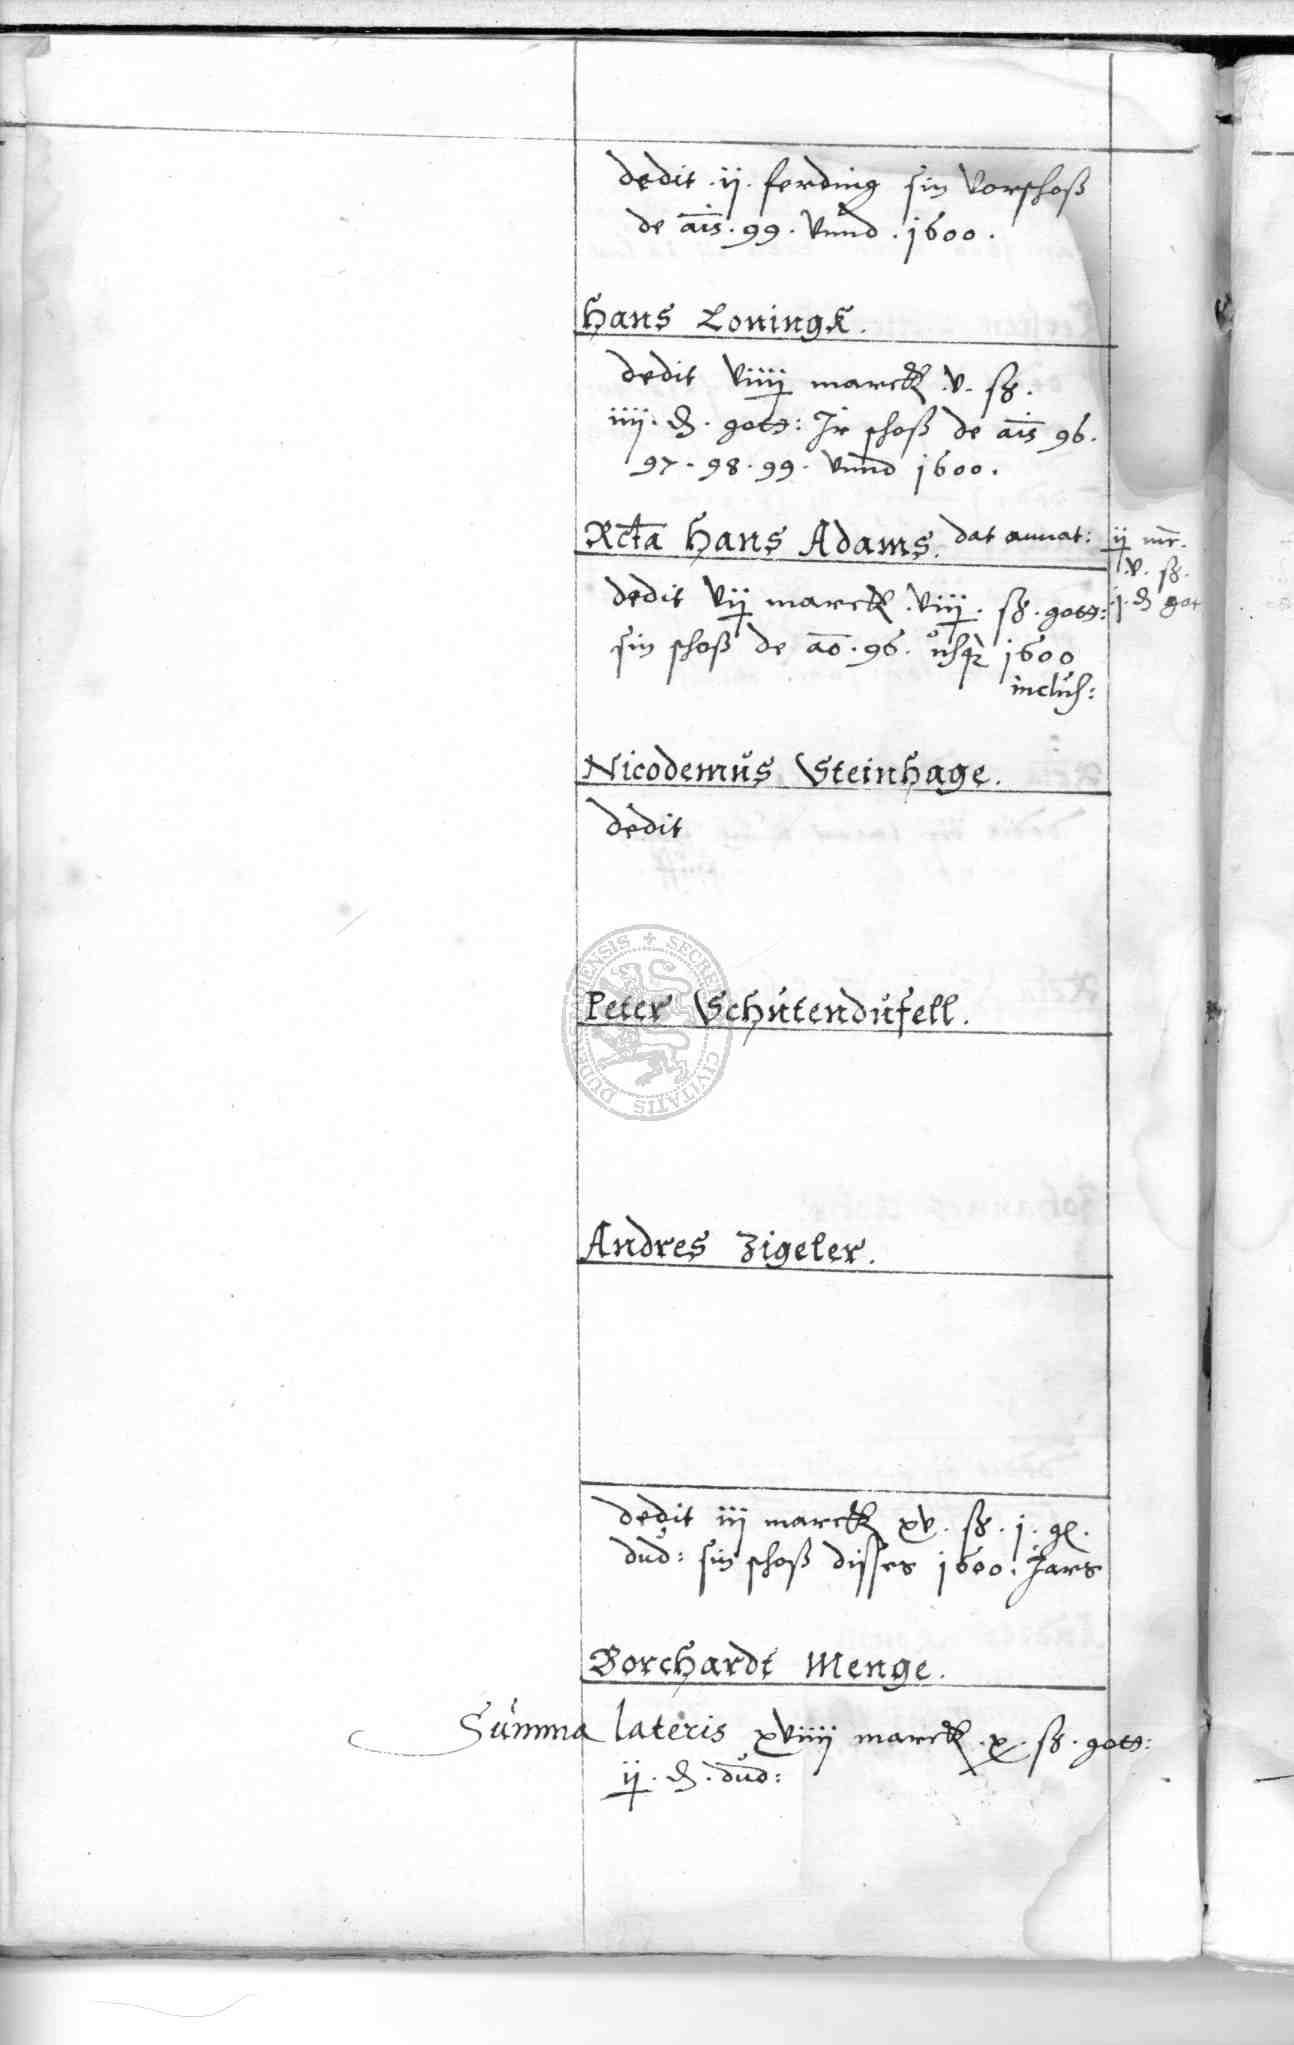 dedit . ij . ferding sin Vorschoß
de a͞is . 99 . Vnnd . 1600 .
Hans Loningk .
dedit viiij marck . v . ß .
iiij . ₰ . gott: Ir schoß de a͞is 96 .
97 . 98 . 99 . Vnnd 1600 .
Rcta Hans Adams . dat annat: ij mr .
v . ß .
j . ₰ got
dedit vij marck . viiij . ß . gott:
sin schoß de a͞o . 96 . usq 1600
inclus:
Nicodemus Steinhage .
dedit
Peter Schutendufell .
Andres Zigeler .
dedit iij marck xv . ß . j . gl .
dud: sin schoß disses 1600 . Jars
Borchardt Menge .
Summa lateris xviiij marck . x . ß . gott:
ij . ₰ . dud:
SECRE CIVITATIS DUDERSTADIENSIS